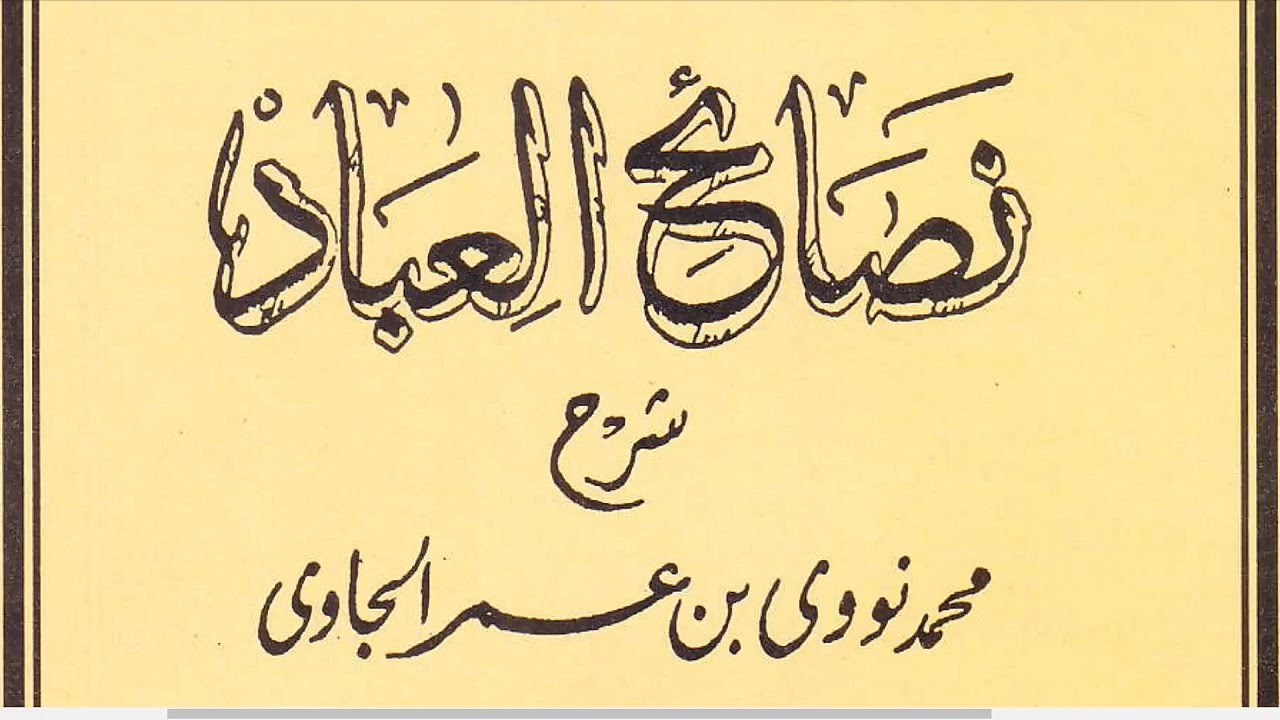 نَصَائِحُ الْعِبَادْ
شرح
محمد نووي بن عمر الجاوي